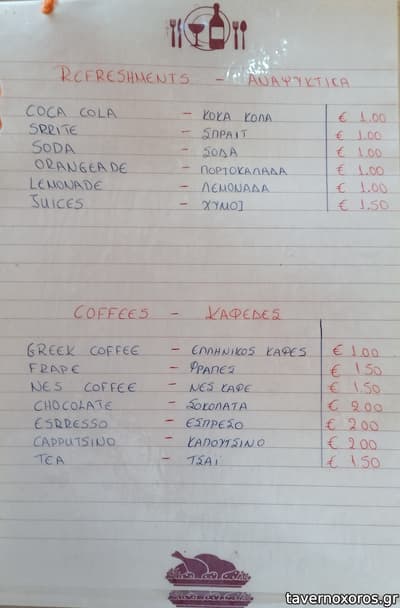 REFRESHMENTS - ΑΝΑΨΥΚΤΙΚΑ
COCA COLA - ΚΟΚΑ ΚΟΛΑ € 1.00
SPRITE - ΣΠΡΑΙΤ € 1.00
SODA - ΣΟΔΑ € 1.00
ORANGEADE - ΠΟΡΤΟΚΑΛΑΔΑ € 1.00
LEMONADE - ΛΕΜΟΝΑΔΑ € 1.00
JUICES - ΧΥΜΟΙ € 1.50
COFFEES - ΚΑΦΕΔΕΣ
GREEK COFFEE - ΕΛΛΗΝΙΚΟΣ ΚΑΦΕΣ € 1.00
FRAPE - ΦΡΑΠΕΣ € 1.50
NES COFFEE - ΝΕΣ ΚΑΦΕ € 1.50
CHOCOLATE - ΣΟΚΟΛΑΤΑ € 2.00
ESPRESSO - ΕΣΠΡΕΣΟ € 2.00
CAPPUTSINO - ΚΑΠΟΥΤΣΙΝΟ € 2.00
TEA - ΤΣΑΪ € 1.50
tavernoxoros.gr